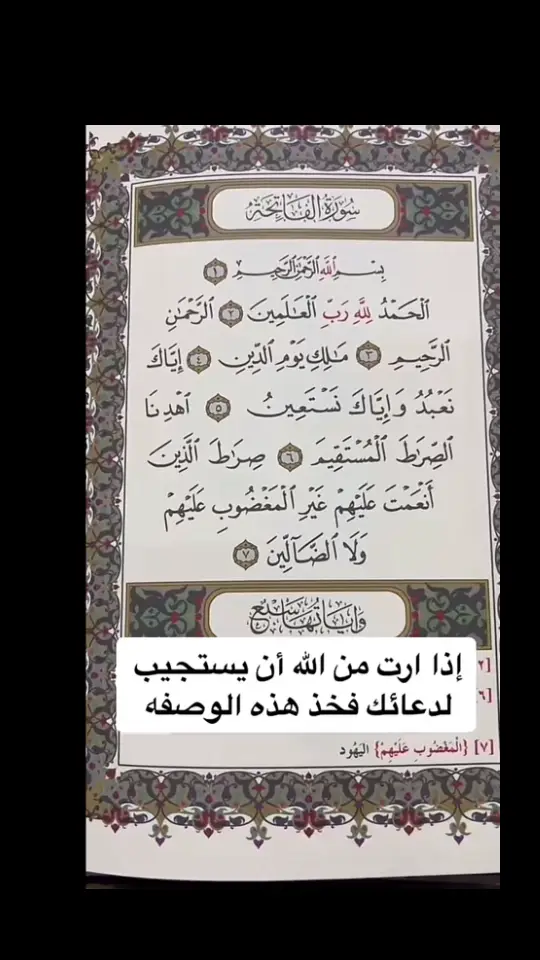 سُورَةُ الفَاتِحَةِ
بِسْمِ اللَّهِ الرَّحْمَٰنِ الرَّحِيمِ ١
الْحَمْدُ لِلَّهِ رَبِّ الْعَالَمِينَ ٢ الرَّحْمَٰنِ
الرَّحِيمِ ٣ مَالِكِ يَوْمِ الدِّينِ ٤ إِيَّاكَ
نَعْبُدُ وَإِيَّاكَ نَسْتَعِينُ ٥ اهْدِنَا
الصِّرَاطَ الْمُسْتَقِيمَ ٦ صِرَاطَ الَّذِينَ
أَنْعَمْتَ عَلَيْهِمْ غَيْرِ الْمَغْضُوبِ عَلَيْهِمْ
وَلَا الضَّالِّينَ ٧
وَآيَاتُهَا سَبْعٌ
[٢
إذا ارت من الله أن يستجيب
لدعائك فخذ هذه الوصفه
[٦]
[٧] {الْمَغْضُوبِ عَلَيْهِمْ} اليَهُود